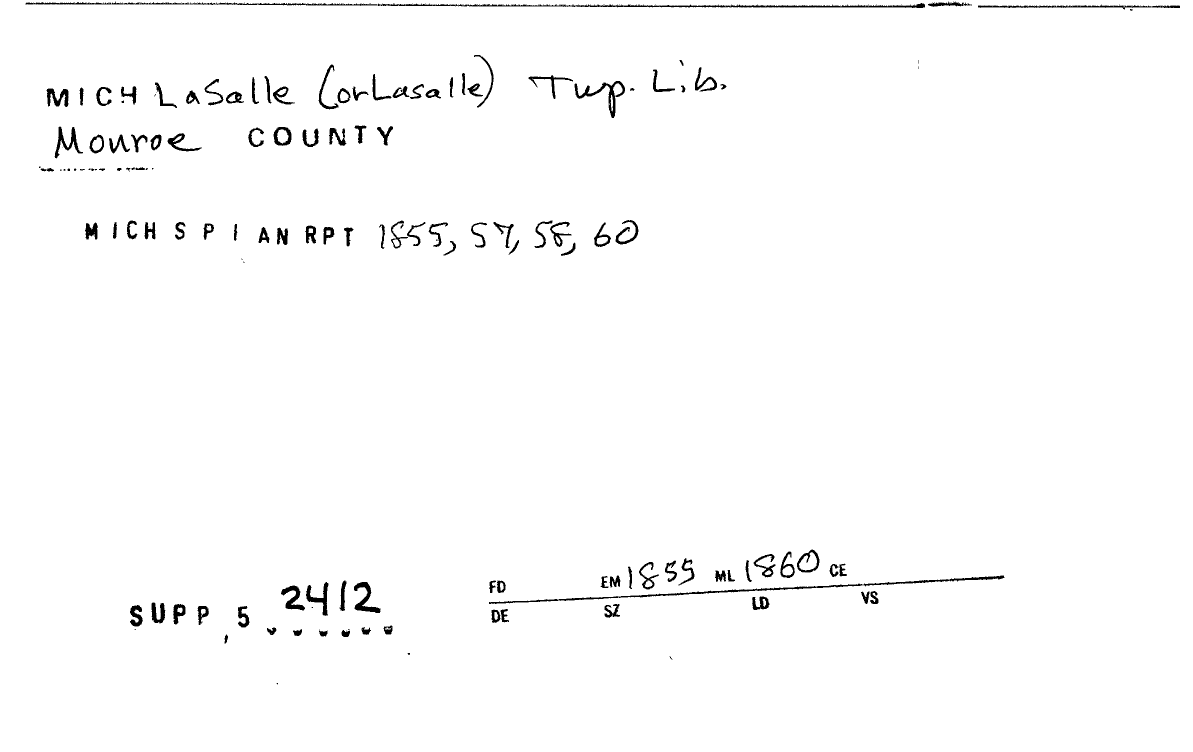 MICH LaSalle (or Lasalle) Twp. Lib.
Monroe COUNTY
MICH S P I AN RPT 1855, 57, 58, 60
SUPP, 5 2412
FD EM 1855 ML 1860 CE
DE SZ LD VS